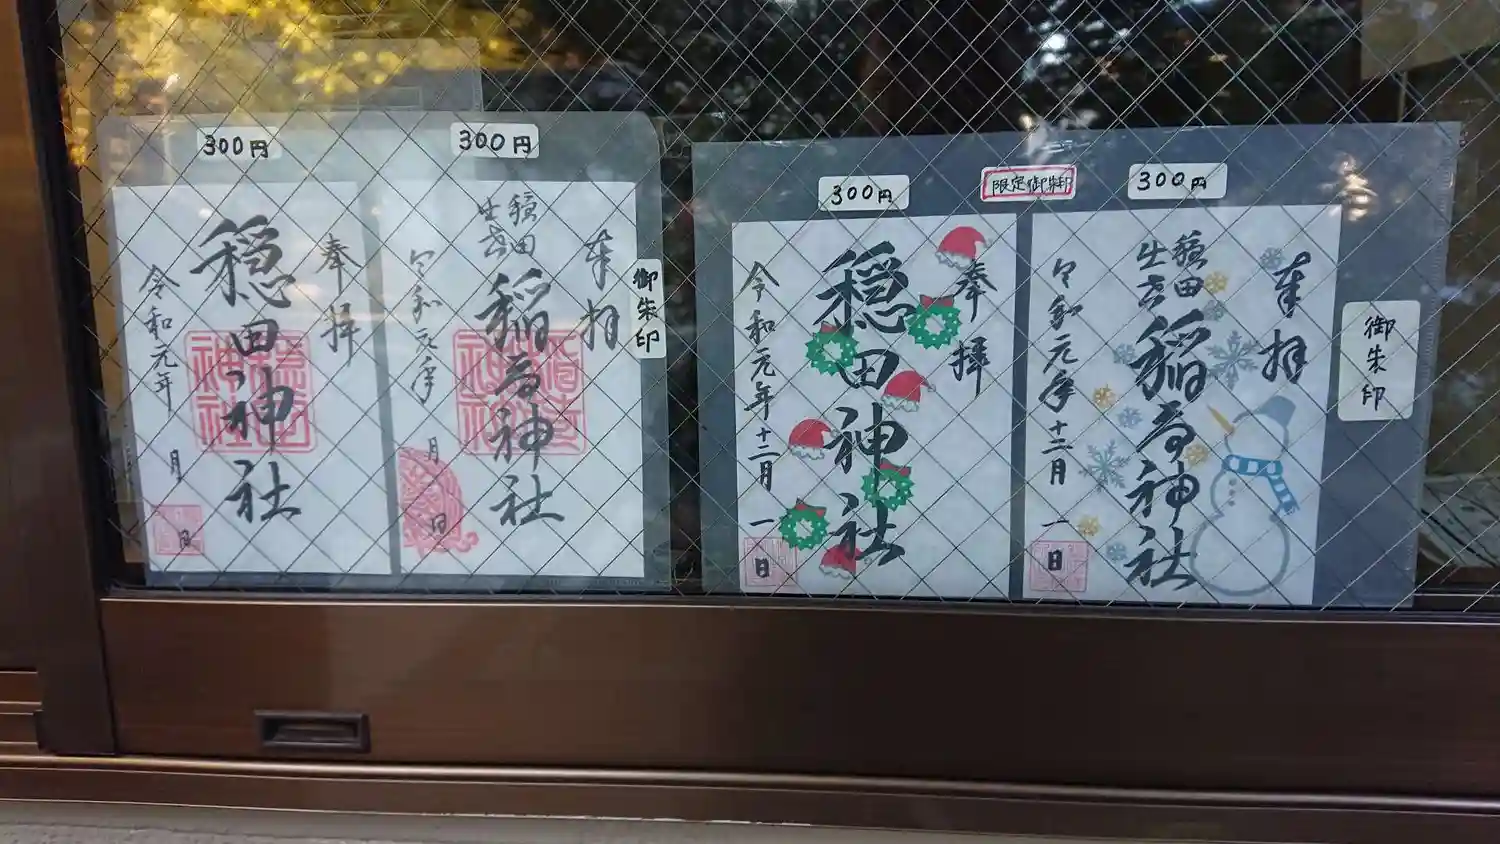 300円
奉拝
穏田神社
令和元年
月
日
300円
奉拝
穏田
稲荷神社
令和元年
月
日
御朱印
300円
奉拝
穏田神社
令和元年十二月一日
限定御朱印
300円
奉拝
穏田
稲荷神社
令和元年十二月一日
御朱印